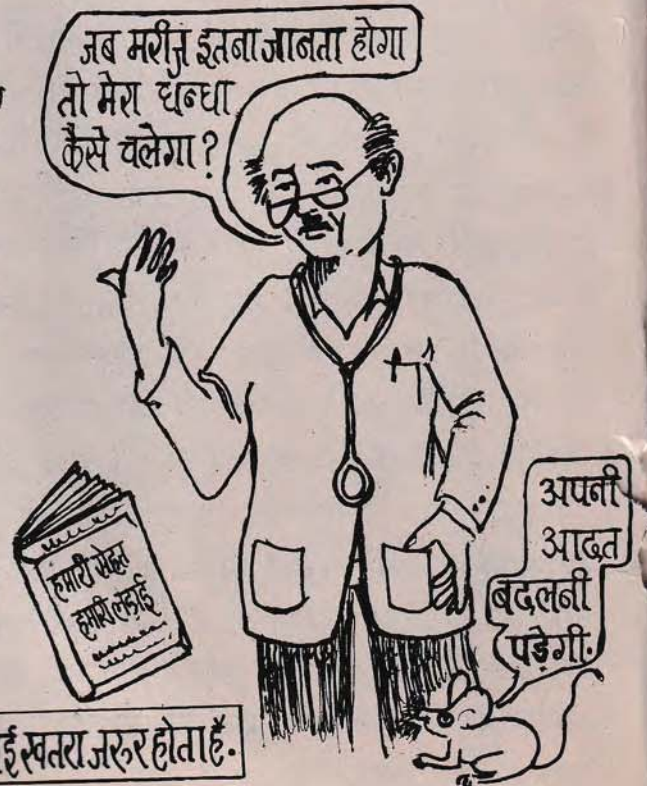 जब मरीज़ इतना जानता होगा
तो मेरा धन्धा
कैसे चलेगा?
हमारी सेहत
हमारी लड़ाई
अपनी
आदत
बदलनी
पड़ेगी.
ई खतरा जरुर होता है.